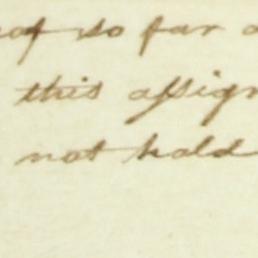 so far
this assign
not hold